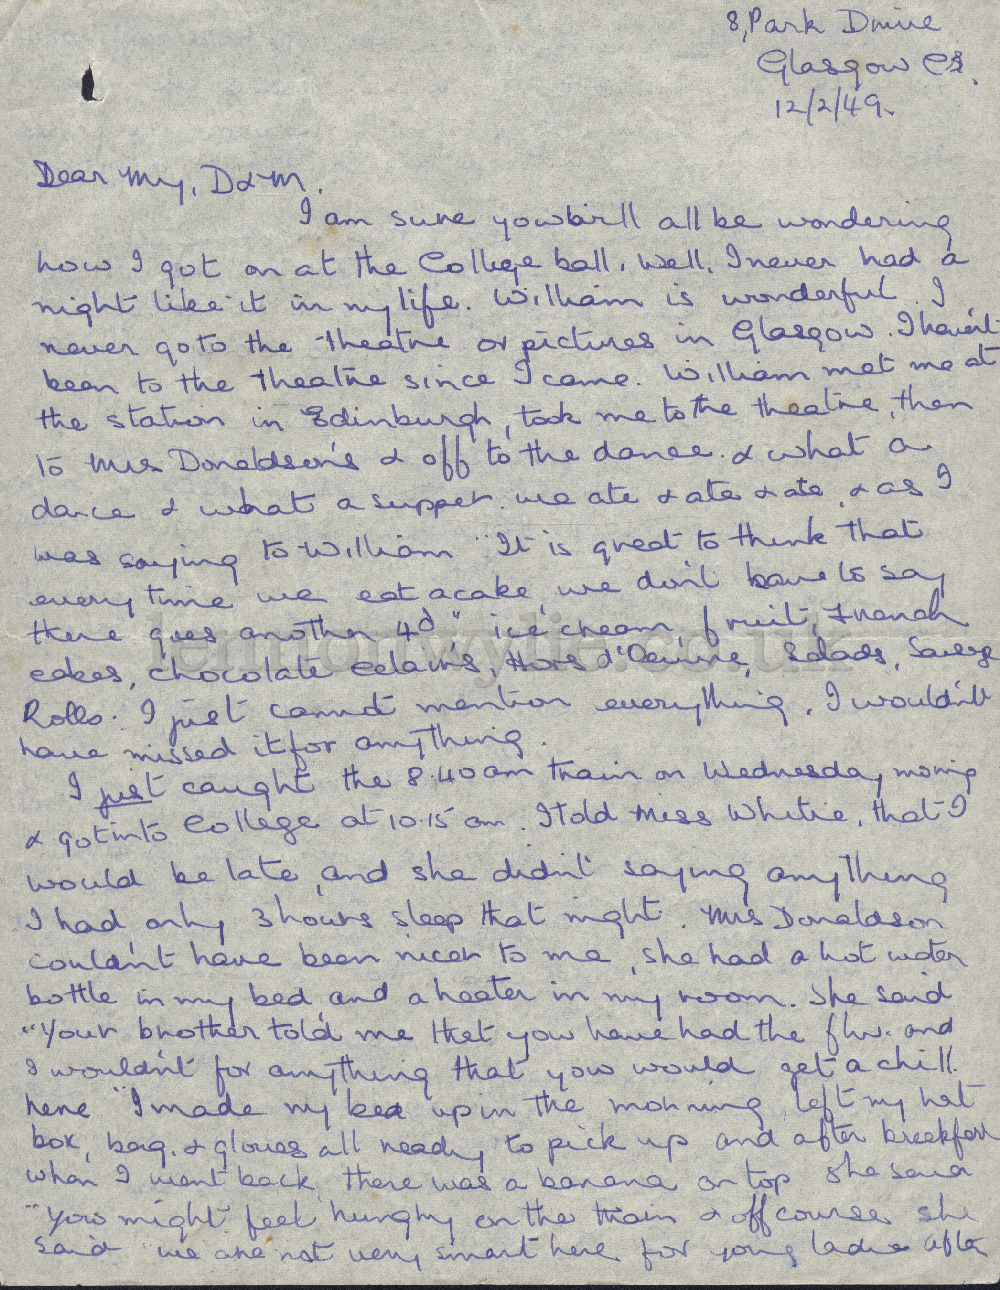 8, Park Drive
Glasgow C3.
12/2/49.
Dear My, D & M.
I am sure you will all be wondering
how I got on at the College ball. Well, I never had a
night like it in my life. William is wonderful. I
never go to the theatre or pictures in Glasgow. I haven't
been to the theatre since I came. William met me at
the station in Edinburgh, took me to the theatre, then
to Mrs Donaldson's & off to the dance. & what a
dance & what a supper. we ate & ate & ate, & as I
was saying to William "It is great to think that
every time we eat a cake we don't have to say
there goes another 4d" ice cream, fruit, French
cakes, chocolate eclairs, Hors d'Oeuvre, Salads, Sausge
Rolls. I just cannot mention everything. I wouldn't
have missed it for anything.
I just caught the 8.40 am train on Wednesday morning
& got into College at 10.15 am. I told Miss Whitie, that I
would be late, and she didn't saying anything
I had only 3 hours sleep that night. Mrs Donaldson
couldn't have been nicer to me, she had a hot water
bottle in my bed and a heater in my room. She said
"Your brother told me that you have had the flu. and
I wouldn't for anything that you would get a chill.
here "I made my bed up in the morning, left my hat
box, bag. & gloves all ready to pick up and after breakfast
when I went back, there was a banana on top she said
"You might feel hungry on the train & off course she
said "we are not very smart here for young ladie after
lennonwylie.co.uk